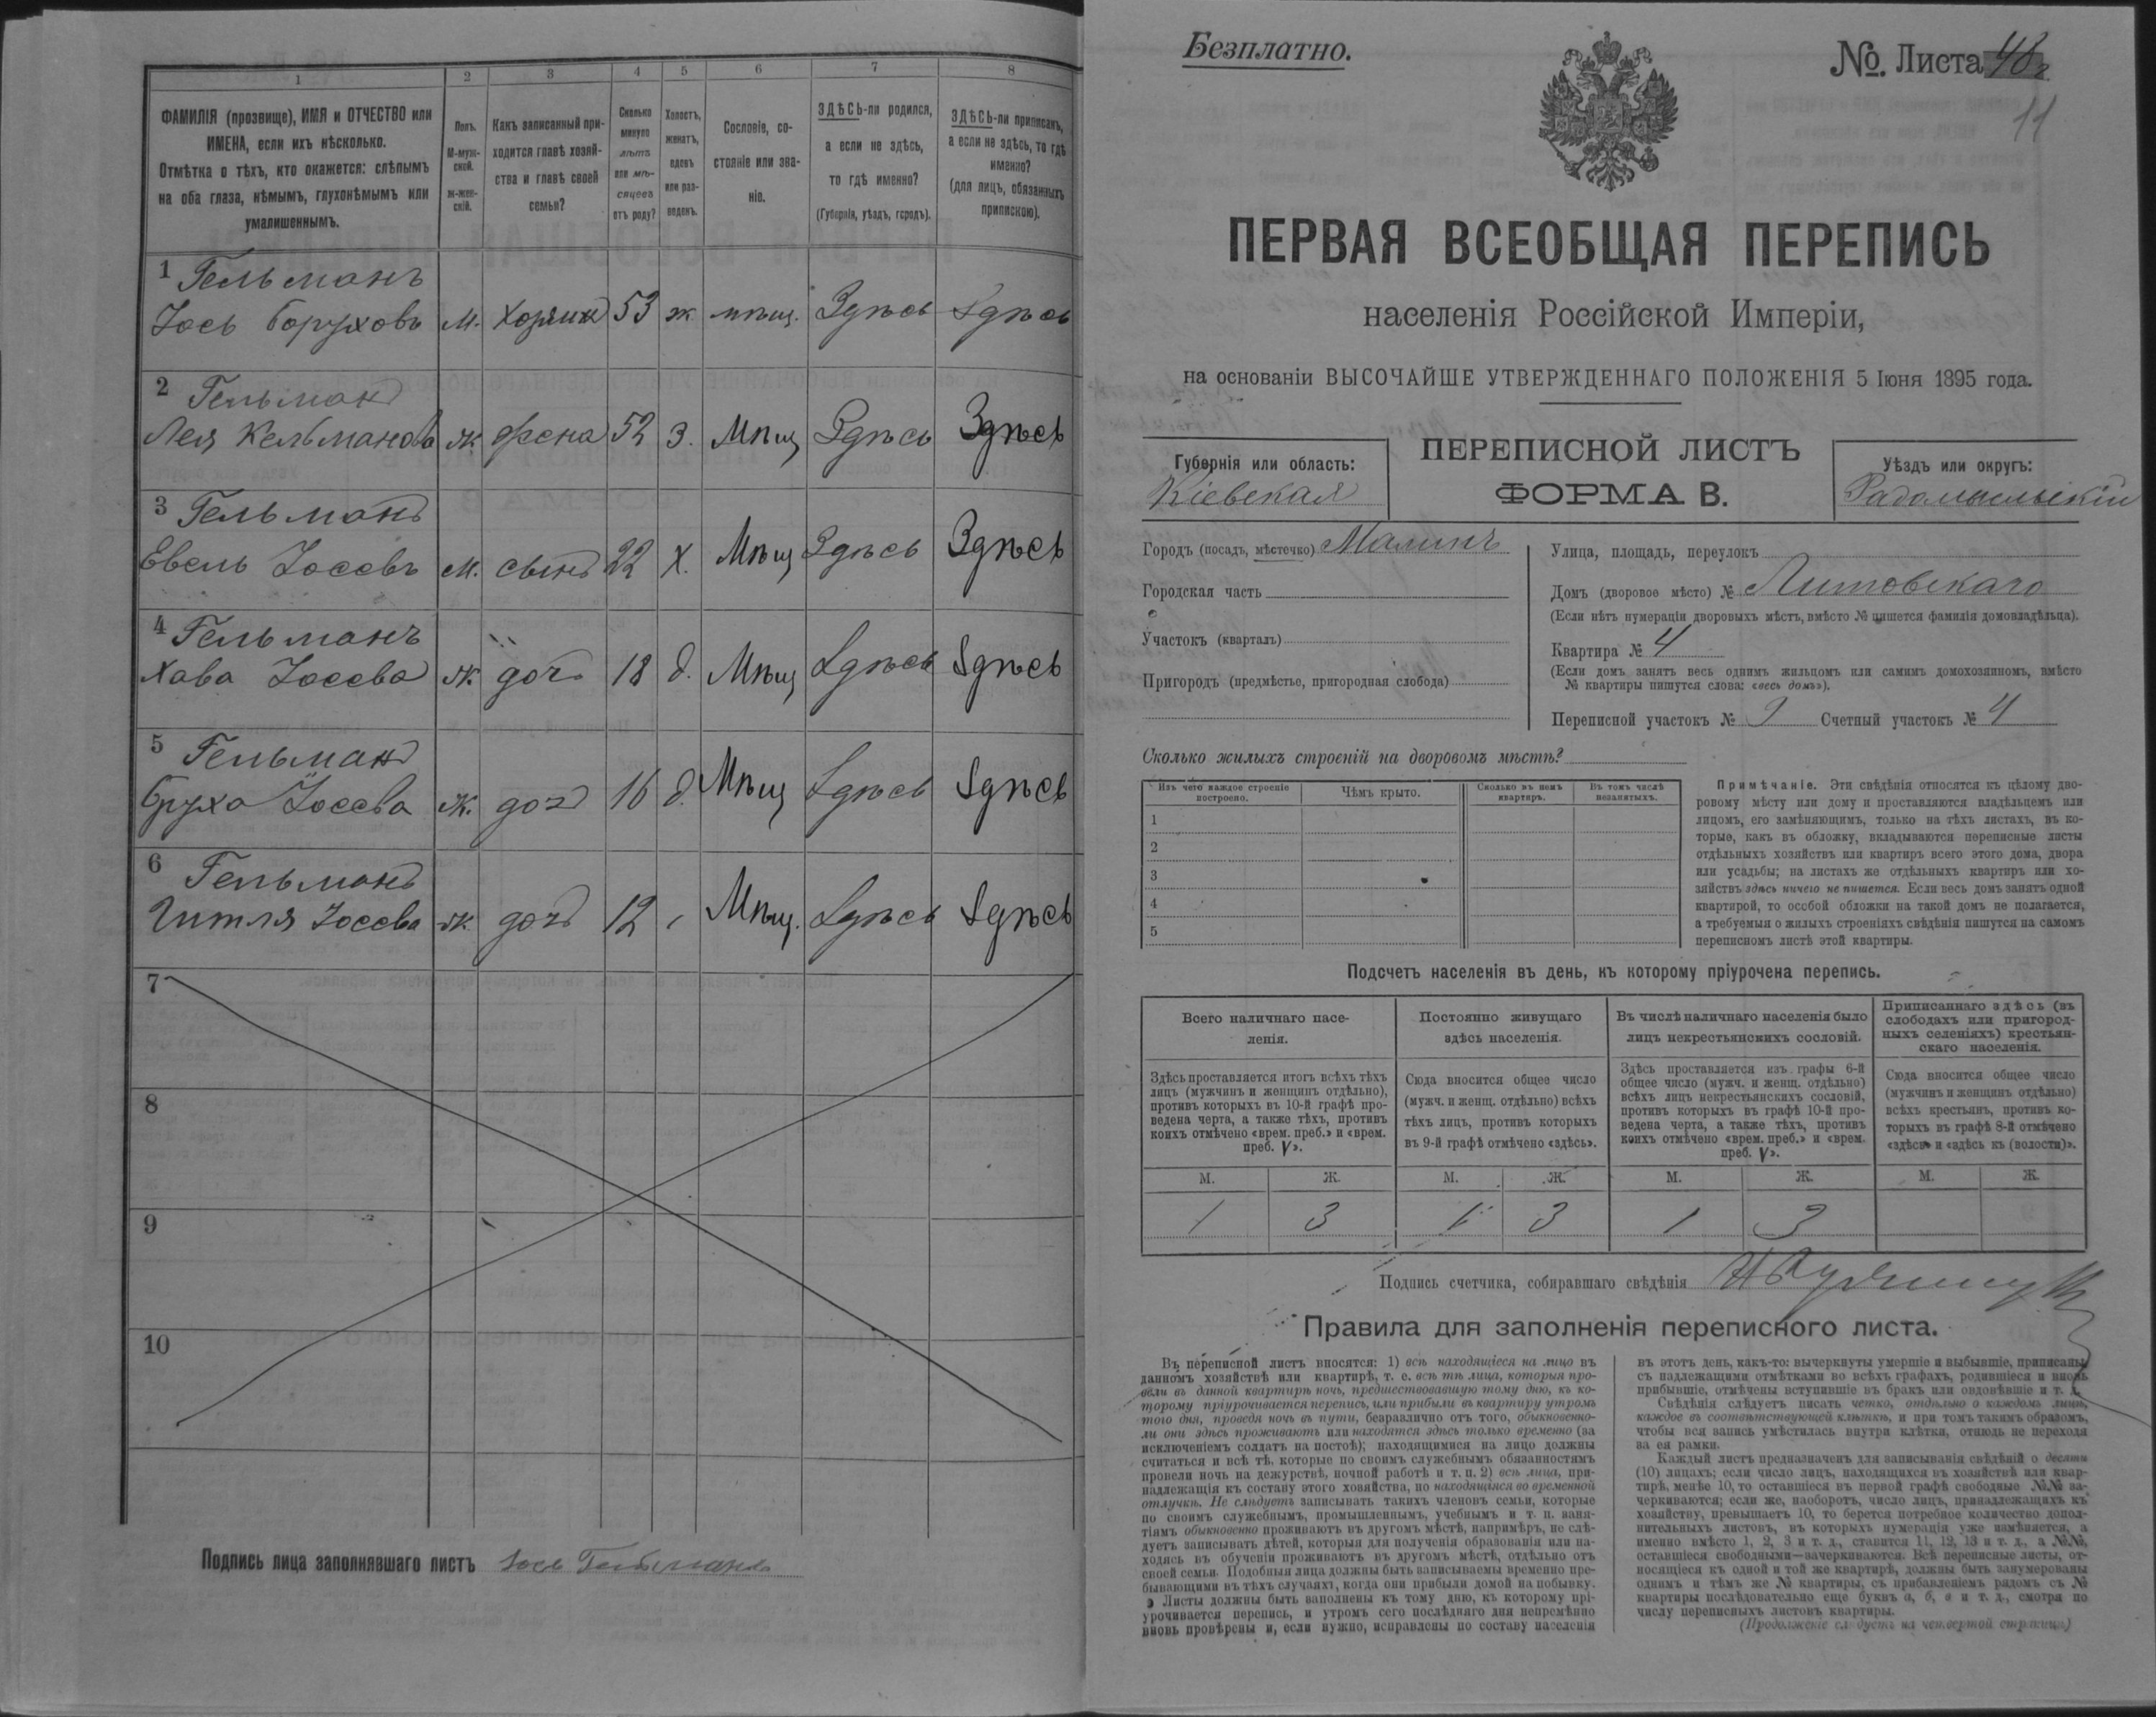 1 2 3 4 5 6 7 8
ФАМИЛІЯ (прозвище), ИМЯ и ОТЧЕСТВО или
ИМЕНА, если ихъ нѣсколько.
Отмѣтка о тѣхъ, кто окажется: слѣпымъ
на оба глаза, нѣмымъ, глухонѣмымъ или
умалишеннымъ.
Полъ.
М-муж-
ской.
ж-жен-
скій.
Какъ записанный при-
ходится главѣ хозяй-
ства и главѣ своей
семьи?
Сколько
минуло
лѣтъ
или мѣ-
сяцевъ
отъ роду?
Холостъ,
женатъ,
вдовъ
или раз-
веденъ.
Сословіе, со-
стояніе или зва-
ніе.
ЗДѢСЬ-ли родился,
а если не здѣсь,
то гдѣ именно?
(Губернія, уѣздъ, городъ).
ЗДѢСЬ-ли приписанъ,
а если не здѣсь, то гдѣ
именно?
(для лицъ, обязанныхъ
припискою).
1 Гельманъ
Іось Боруховъ м. хозяинъ 53 ж мѣщ. Здѣсь Здѣсь
2 Гельманъ
Лея Кельманова ж. жена 52 З. Мѣщ Здѣсь Здѣсь
3 Гельманъ
Евель Іосевъ м. сынъ 22 Х. Мѣщ Здѣсь Здѣсь
4 Гельманъ
Хава Іосева ж. дочь 18 д. Мѣщ Здѣсь Здѣсь
5 Гельманъ
Бруха Іосева ж. дочь 16 д. Мѣщ Здѣсь Здѣсь
6 Гельманъ
Гитля Іосева ж. дочь 12 Мѣщ. Здѣсь Здѣсь
7
8
9
10
Подпись лица заполнявшаго листъ Іось Гельманъ
Безплатно.
№. Листа 48
11
ПЕРВАЯ ВСЕОБЩАЯ ПЕРЕПИСЬ
населенія Россійской Имперіи,
на основаніи ВЫСОЧАЙШЕ УТВЕРЖДЕННАГО ПОЛОЖЕНІЯ 5 Іюня 1895 года.
Губернія или область:
Кіевская
ПЕРЕПИСНОЙ ЛИСТЪ
ФОРМА В.
Уѣздъ или округъ:
Радомысльскій
Городъ (посадъ, мѣстечко) Малинъ
Городская часть
Участокъ (кварталъ)
Пригородъ (предмѣстье, пригородная слобода)
Улица, площадь, переулокъ
Домъ (дворовое мѣсто) № Литовскаго
(Если нѣтъ нумераціи дворовыхъ мѣстъ, вмѣсто № пишется фамилія домовладѣльца).
Квартира № 4
(Если домъ занятъ весь однимъ жильцомъ или самимъ домохозяиномъ, вмѣсто
№ квартиры пишутся слова: «весь домъ»).
Переписной участокъ № Счетный участокъ № 4
Сколько жилыхъ строеній на дворовомъ мѣстѣ?
Изъ чего каждое строеніе
построено.
Чѣмъ крыто.
Сколько въ немъ
квартиръ.
Въ томъ числѣ
незанятыхъ.
1
2
3
4
5
Примѣчаніе. Эти свѣдѣнія относятся къ цѣлому дво-
ровому мѣсту или дому и проставляются владѣльцемъ или
лицомъ, его замѣняющимъ, только на тѣхъ листахъ, въ ко-
торые, какъ въ обложку, вкладываются переписные листы
отдѣльныхъ хозяйствъ или квартиръ всего этого дома, двора
или усадьбы; на листахъ же отдѣльныхъ квартиръ или хо-
зяйствъ здѣсь ничего не пишется. Если весь домъ занятъ одной
квартирой, то особой обложки на такой домъ не полагается,
а требуемыя о жилыхъ строеніяхъ свѣдѣнія пишутся на самомъ
переписномъ листѣ этой квартиры.
Подсчетъ населенія въ день, къ которому пріурочена перепись.
Всего наличнаго насе-
ленія.
Здѣсь проставляется итогъ всѣхъ тѣхъ
лицъ (мужчинъ и женщинъ отдѣльно),
противъ которыхъ въ 10-й графѣ про-
ведена черта, а также тѣхъ, противъ
коихъ отмѣчено «врем. преб.» и «врем.
преб. V».
Постоянно живущаго
здѣсь населенія.
Сюда вносится общее число
(мужч. и женщ. отдѣльно) всѣхъ
тѣхъ лицъ, противъ которыхъ
въ 9-й графѣ отмѣчено «здѣсь».
Въ числѣ наличнаго населенія было
лицъ некрестьянскихъ сословій.
Здѣсь проставляется изъ графы 6-й
общее число (мужч. и женщ. отдѣльно)
всѣхъ лицъ некрестьянскихъ сословій,
противъ которыхъ въ графѣ 10-й про-
ведена черта, а также тѣхъ, противъ
коихъ отмѣчено «врем. преб.» и «врем.
преб. V».
Приписаннаго здѣсь (въ
слободахъ или пригород-
ныхъ селеніяхъ) крестьян-
скаго населенія.
Сюда вносится общее число
(мужчинъ и женщинъ отдѣльно)
всѣхъ крестьянъ, противъ ко-
торыхъ въ графѣ 8-й отмѣчено
«здѣсь» и «здѣсь къ (волости)».
М. Ж. М. Ж. М. Ж. М. Ж.
1 3 1 3 1 3
Подпись счетчика, собиравшаго свѣдѣнія
Правила для заполненія переписного листа.
Въ переписной листъ вносятся: 1) всѣ находящіеся на лицо въ
данномъ хозяйствѣ или квартирѣ, т. е. всѣ тѣ лица, которыя про-
вели въ данной квартирѣ ночь, предшествовавшую тому дню, къ ко-
торому пріурочивается перепись, или прибыли въ квартиру утромъ
того дня, проведя ночь въ пути, безразлично отъ того, обыкновенно-
ли они здѣсь проживаютъ или находятся здѣсь только временно (за
исключеніемъ солдатъ на постоѣ); находящимися на лицо должны
считаться и всѣ тѣ, которые по своимъ служебнымъ обязанностямъ
провели ночь на дежурствѣ, ночной работѣ и т. п. 2) всѣ лица, при-
надлежащія къ составу этого хозяйства, но находящіяся во временной
отлучкѣ. Не слѣдуетъ записывать такихъ членовъ семьи, которые
по своимъ служебнымъ, промышленнымъ, учебнымъ и т. п. заня-
тіямъ обыкновенно проживаютъ въ другомъ мѣстѣ, напримѣръ, не слѣ-
дуетъ записывать дѣтей, которыя для полученія образованія или на-
ходясь въ обученіи проживаютъ въ другомъ мѣстѣ, отдѣльно отъ
своей семьи. Подобныя лица должны быть записываемы временно пре-
бывающими въ тѣхъ случаяхъ, когда они прибыли домой на побывку.
Листы должны быть заполнены къ тому дню, къ которому прі-
урочивается перепись, и утромъ сего послѣдняго дня непремѣнно
вновь провѣрены и, если нужно, исправлены по составу населенія
въ этотъ день, какъ-то: вычеркнуты умершіе и выбывшіе, приписаны
съ надлежащими отмѣтками во всѣхъ графахъ, родившіеся и вновь
прибывшіе, отмѣчены вступившіе въ бракъ или овдовѣвшіе и т. д.
Свѣдѣнія слѣдуетъ писать четко, отдѣльно о каждомъ лицѣ,
каждое въ соотвѣтствующей клѣткѣ, и при томъ такимъ образомъ,
чтобы вся запись умѣстилась внутри клѣтки, отнюдь не переходя
за ея рамки.
Каждый листъ предназначенъ для записыванія свѣдѣній о десяти
(10) лицахъ; если число лицъ, находящихся въ хозяйствѣ или квар-
тирѣ, менѣе 10, то оставшіеся въ первой графѣ свободные №№ за-
черкиваются; если же, наоборотъ, число лицъ, принадлежащихъ къ
хозяйству, превышаетъ 10, то берется потребное количество допол-
нительныхъ листовъ, въ которыхъ нумерація уже измѣняется, а
именно вмѣсто 1, 2, 3 и т. д., ставится 11, 12, 13 и т. д., а №№,
оставшіеся свободными—зачеркиваются. Всѣ переписные листы, от-
носящіеся къ одной и той же квартирѣ, должны быть занумерованы
однимъ и тѣмъ же № квартиры, съ прибавленіемъ рядомъ съ №
квартиры послѣдовательно еще буквъ а, б, в и т. д., смотря по
числу переписныхъ листовъ квартиры.
(Продолженіе слѣдуетъ на четвертой страницѣ)